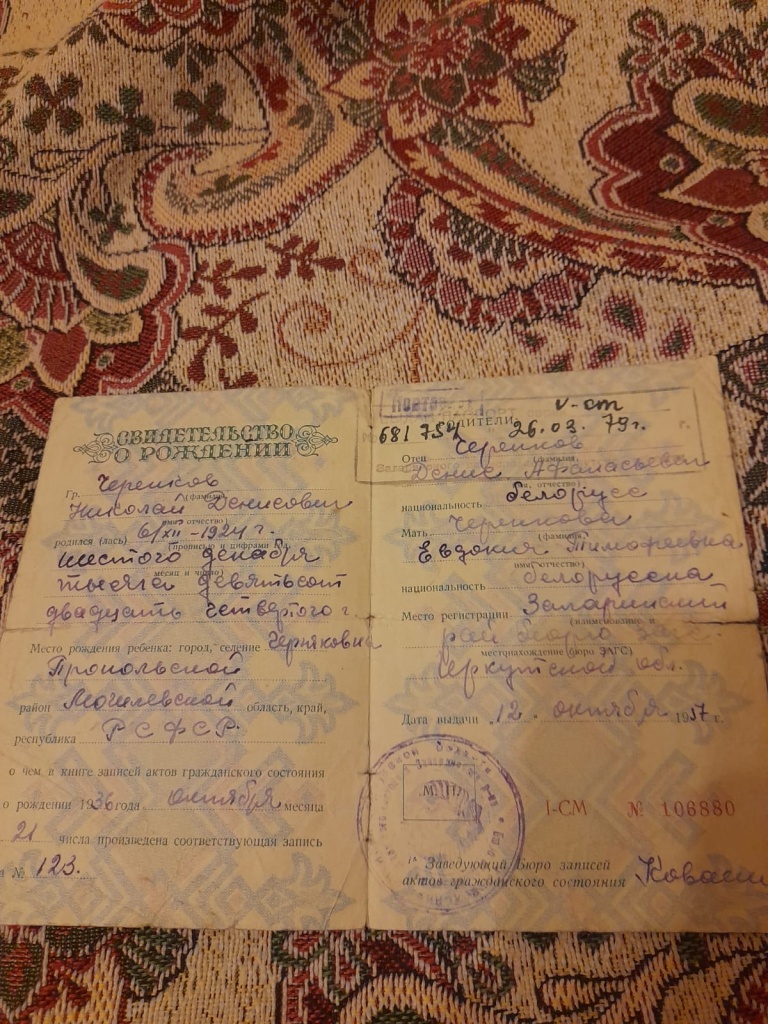 СВИДЕТЕЛЬСТВО
О РОЖДЕНИИ
Гр. Черепков
(фамилия,
Николай Денисович
имя, отчество)
родился (лась) 6/XII-1924 г.
(прописью и цифрами год,
шестого декабря
месяц и число)
тысяча девятьсот
двадцать четвертого г
Место рождения ребенка: город, селение Черняковка
Пропольской
район Могилевской область, край,
республика РСФСР
о чем в книге записей актов гражданского состояния
о рождении 1936 года октября месяца
21 числа произведена соответствующая запись
№ 123.
V-ст
681754 26.03.79г.
РОДИТЕЛИ
Отец Черепков
(фамилия,
Денис Афанасьевич
имя, отчество)
национальность белорусс
Мать Черепкова
(фамилия,
Евдокия Тимофеевна
имя, отчество)
национальность белорусска
Место регистрации Заларинский
(наименование и
рай бюро загс
местонахождение (бюро ЗАГС)
Иркутской обл.
Дата выдачи 12 октября 1957 г.
М. П.
I-СМ № 106880
Заведующий Бюро записей
актов гражданского состояния